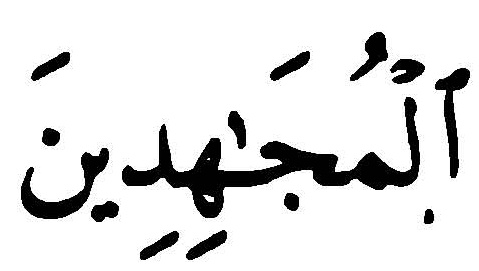 ٱلْمُجَٰهِدِينَ